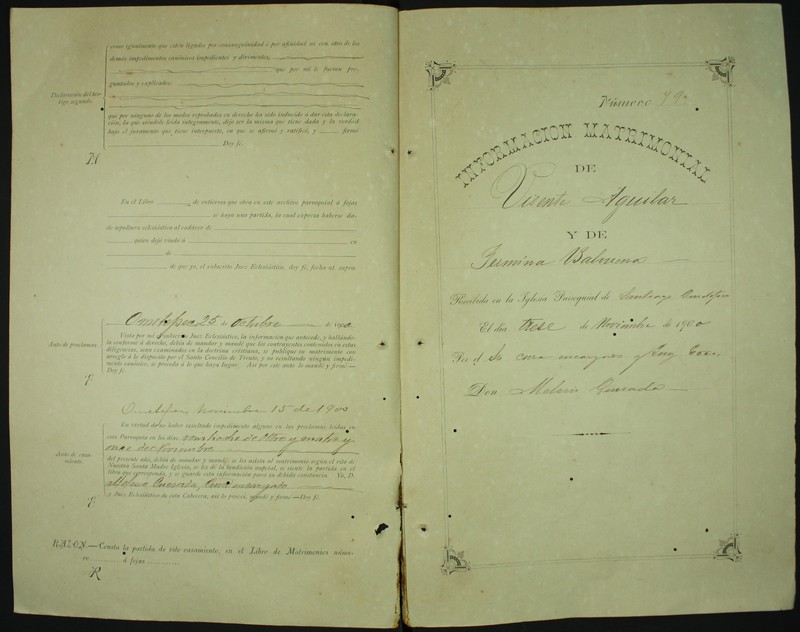 como igualmente que estén ligados por consanguinidad ó por afinidad ni con otro de los
demás impedimentos canónicos impedientes y dirimentes,
que por mí le fueron pre-
guntados y explicados.
Declaración del tes-
tigo segundo.
que por ninguno de los modos reprobados en derecho ha sido inducido á dar esta declara-
ción, la que siéndole leída íntegramente, dijo ser la misma que tiene dada y la verdad
bajo el juramento que tiene interpuesto, en que se afirmó y ratificó, y firmó
Doy fé.
En el Libro de entierros que obra en este archivo parroquial á fojas
se haya una partida, la cual expresa haberse da-
do sepultura eclesiástica al cadáver de
quien dejó viudo á en
de
de que yo, el infrascrito Juez Eclesiástico, doy fé, fecha ut supra.
Ometepec 25 de Octubre de 1900
Auto de proclamas.
Vista por mí el infrascrito Juez Eclesiástico, la información que antecede, y hallándo-
la conforme á derecho, debía de mandar y mandé que los contrayentes contenidos en estas
diligencias, sean examinados en la doctrina cristiana, se publique su matrimonio con
arreglo á lo dispuesto por el Santo Concilio de Trento, y no resultando ningún impedi-
mento canónico, se proceda á lo que haya lugar. Así por este auto lo mandé y firmé.—
Doy fé.
Ometepec, Noviembre 15 de 1900
En virtud de no haber resultado impedimento alguno en las proclamas leídas en
esta Parroquia en los días veintiocho de Obre y cuatro y
once de Noviembre
Auto de casa-
miento.
del presente año, debía de mandar y mandé: se les asista al matrimonio según el rito de
Nuestra Santa Madre Iglesia, se les dé la bendición nupcial, se siente la partida en el
libro que corresponda, y se guarde esta información para su debida constancia. Yo, D.
Melesio Quesada, Cura encargado
y Juez Eclesiástico de esta Cabecera, así lo proveí, mandé y firmé.—Doy fé.
RAZON.—Consta la partida de este casamiento, en el Libro de Matrimonios núme-
ro á fojas
Número 79.
INFORMACION MATRIMONIAL
DE
Vicente Aguilar
Y DE
Fermina Balbuena
Recibida en la Iglesia Parroquial de Santiago Ometepec
El día trese de Noviembre de 1900
Por el Sr. cura encargado y Juez Ecco.
Don Melesio Quesada